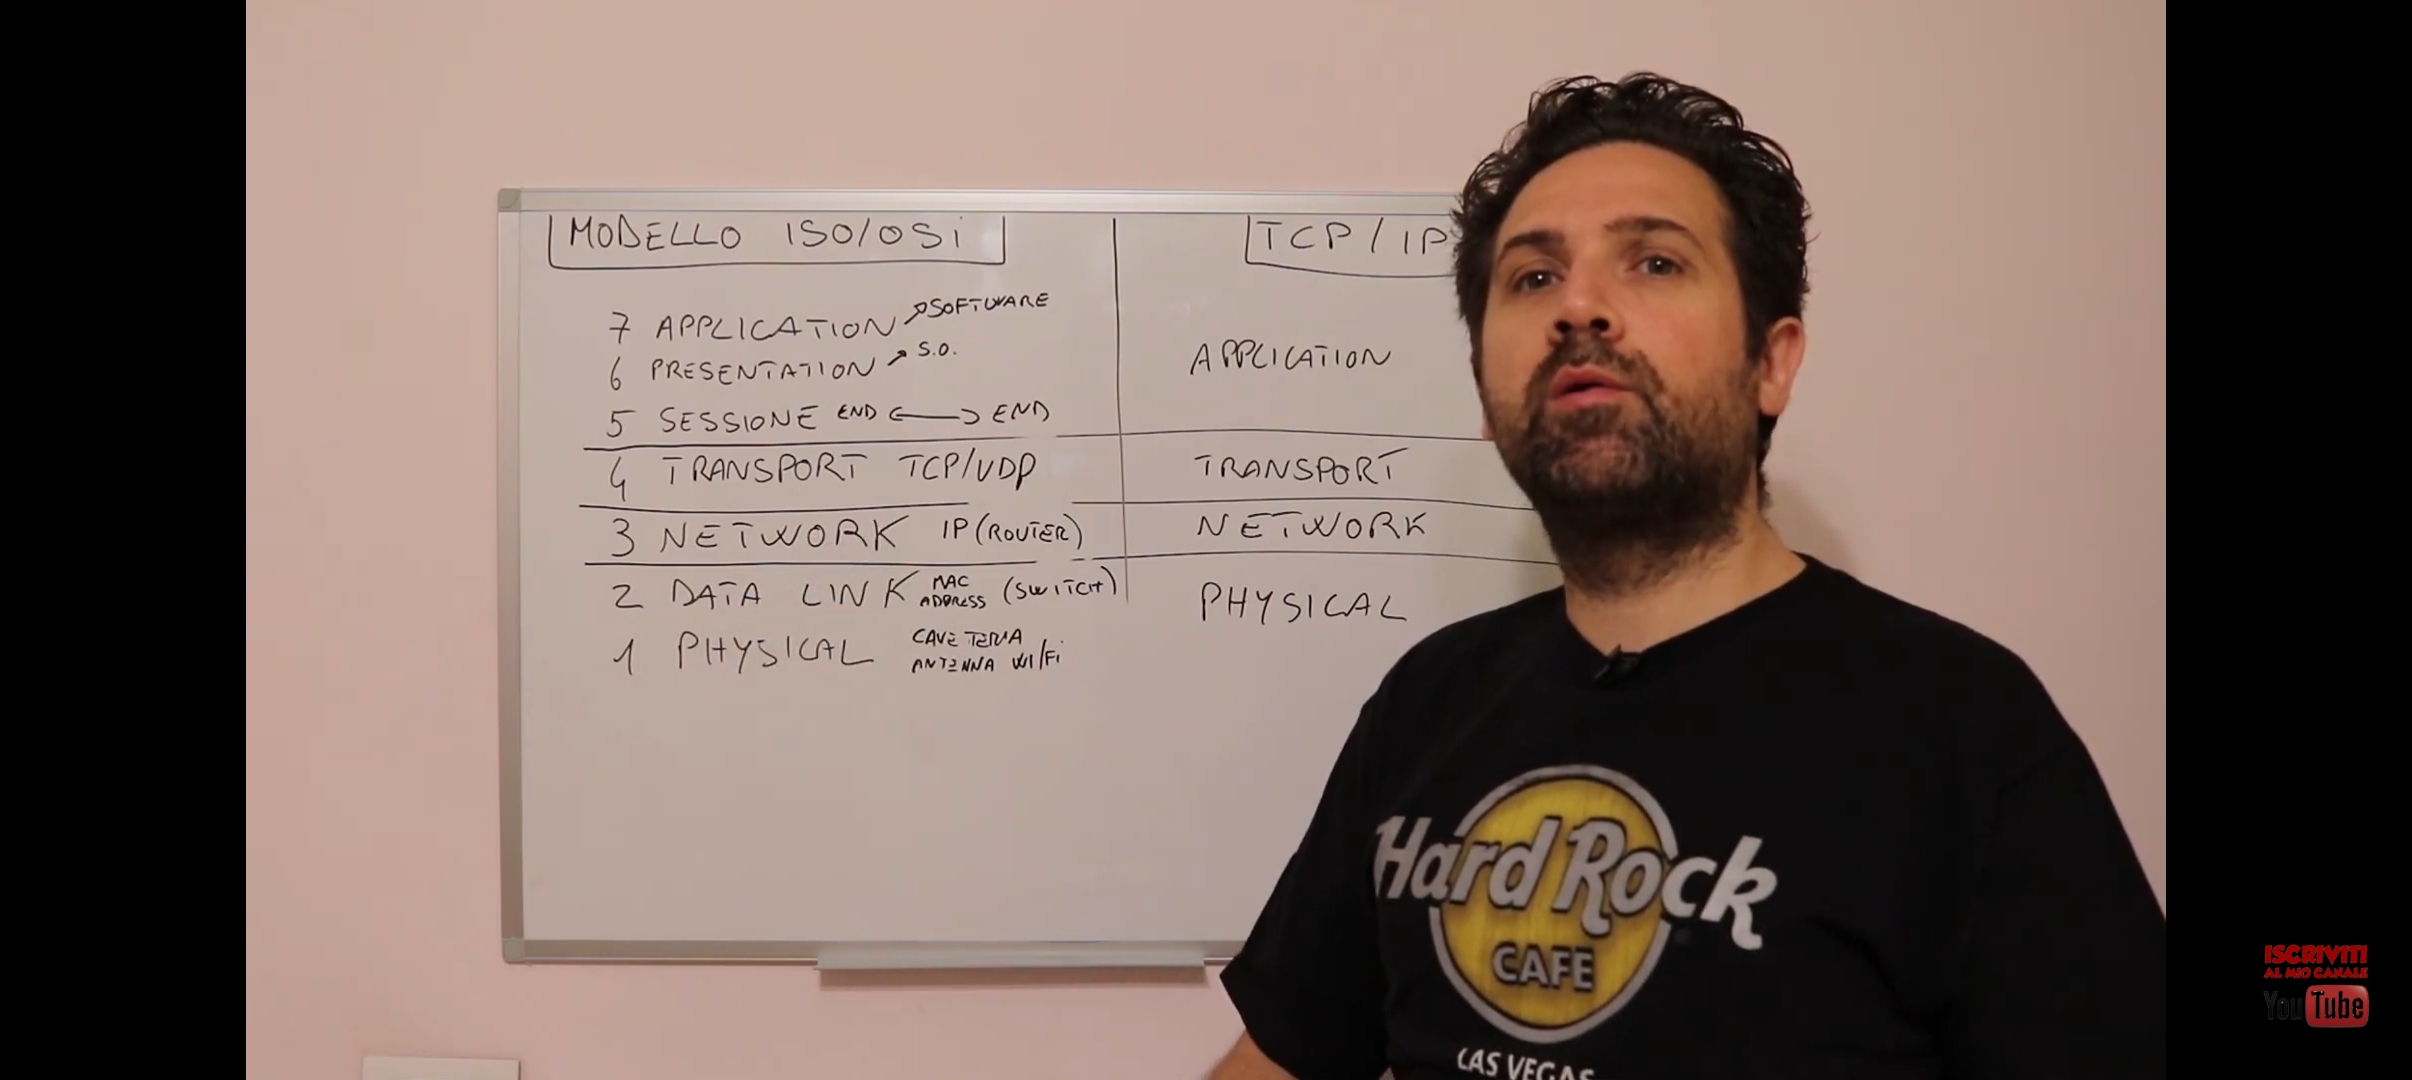 MODELLO ISO/OSI
7 APPLICATION SOFTWARE
6 PRESENTATION S.O.
5 SESSIONE END END
4 TRANSPORT TCP/UDP
3 NETWORK IP (ROUTER)
2 DATA LINK MAC ADDRESS (SWITCH)
1 PHYSICAL CAVETERIA
ANTENNA WI/Fi
TCP/IP
APPLICATION
TRANSPORT
NETWORK
PHYSICAL
Hard Rock
CAFE
LAS VEGAS
ISCRIVITI
AL MIO CANALE
YouTube